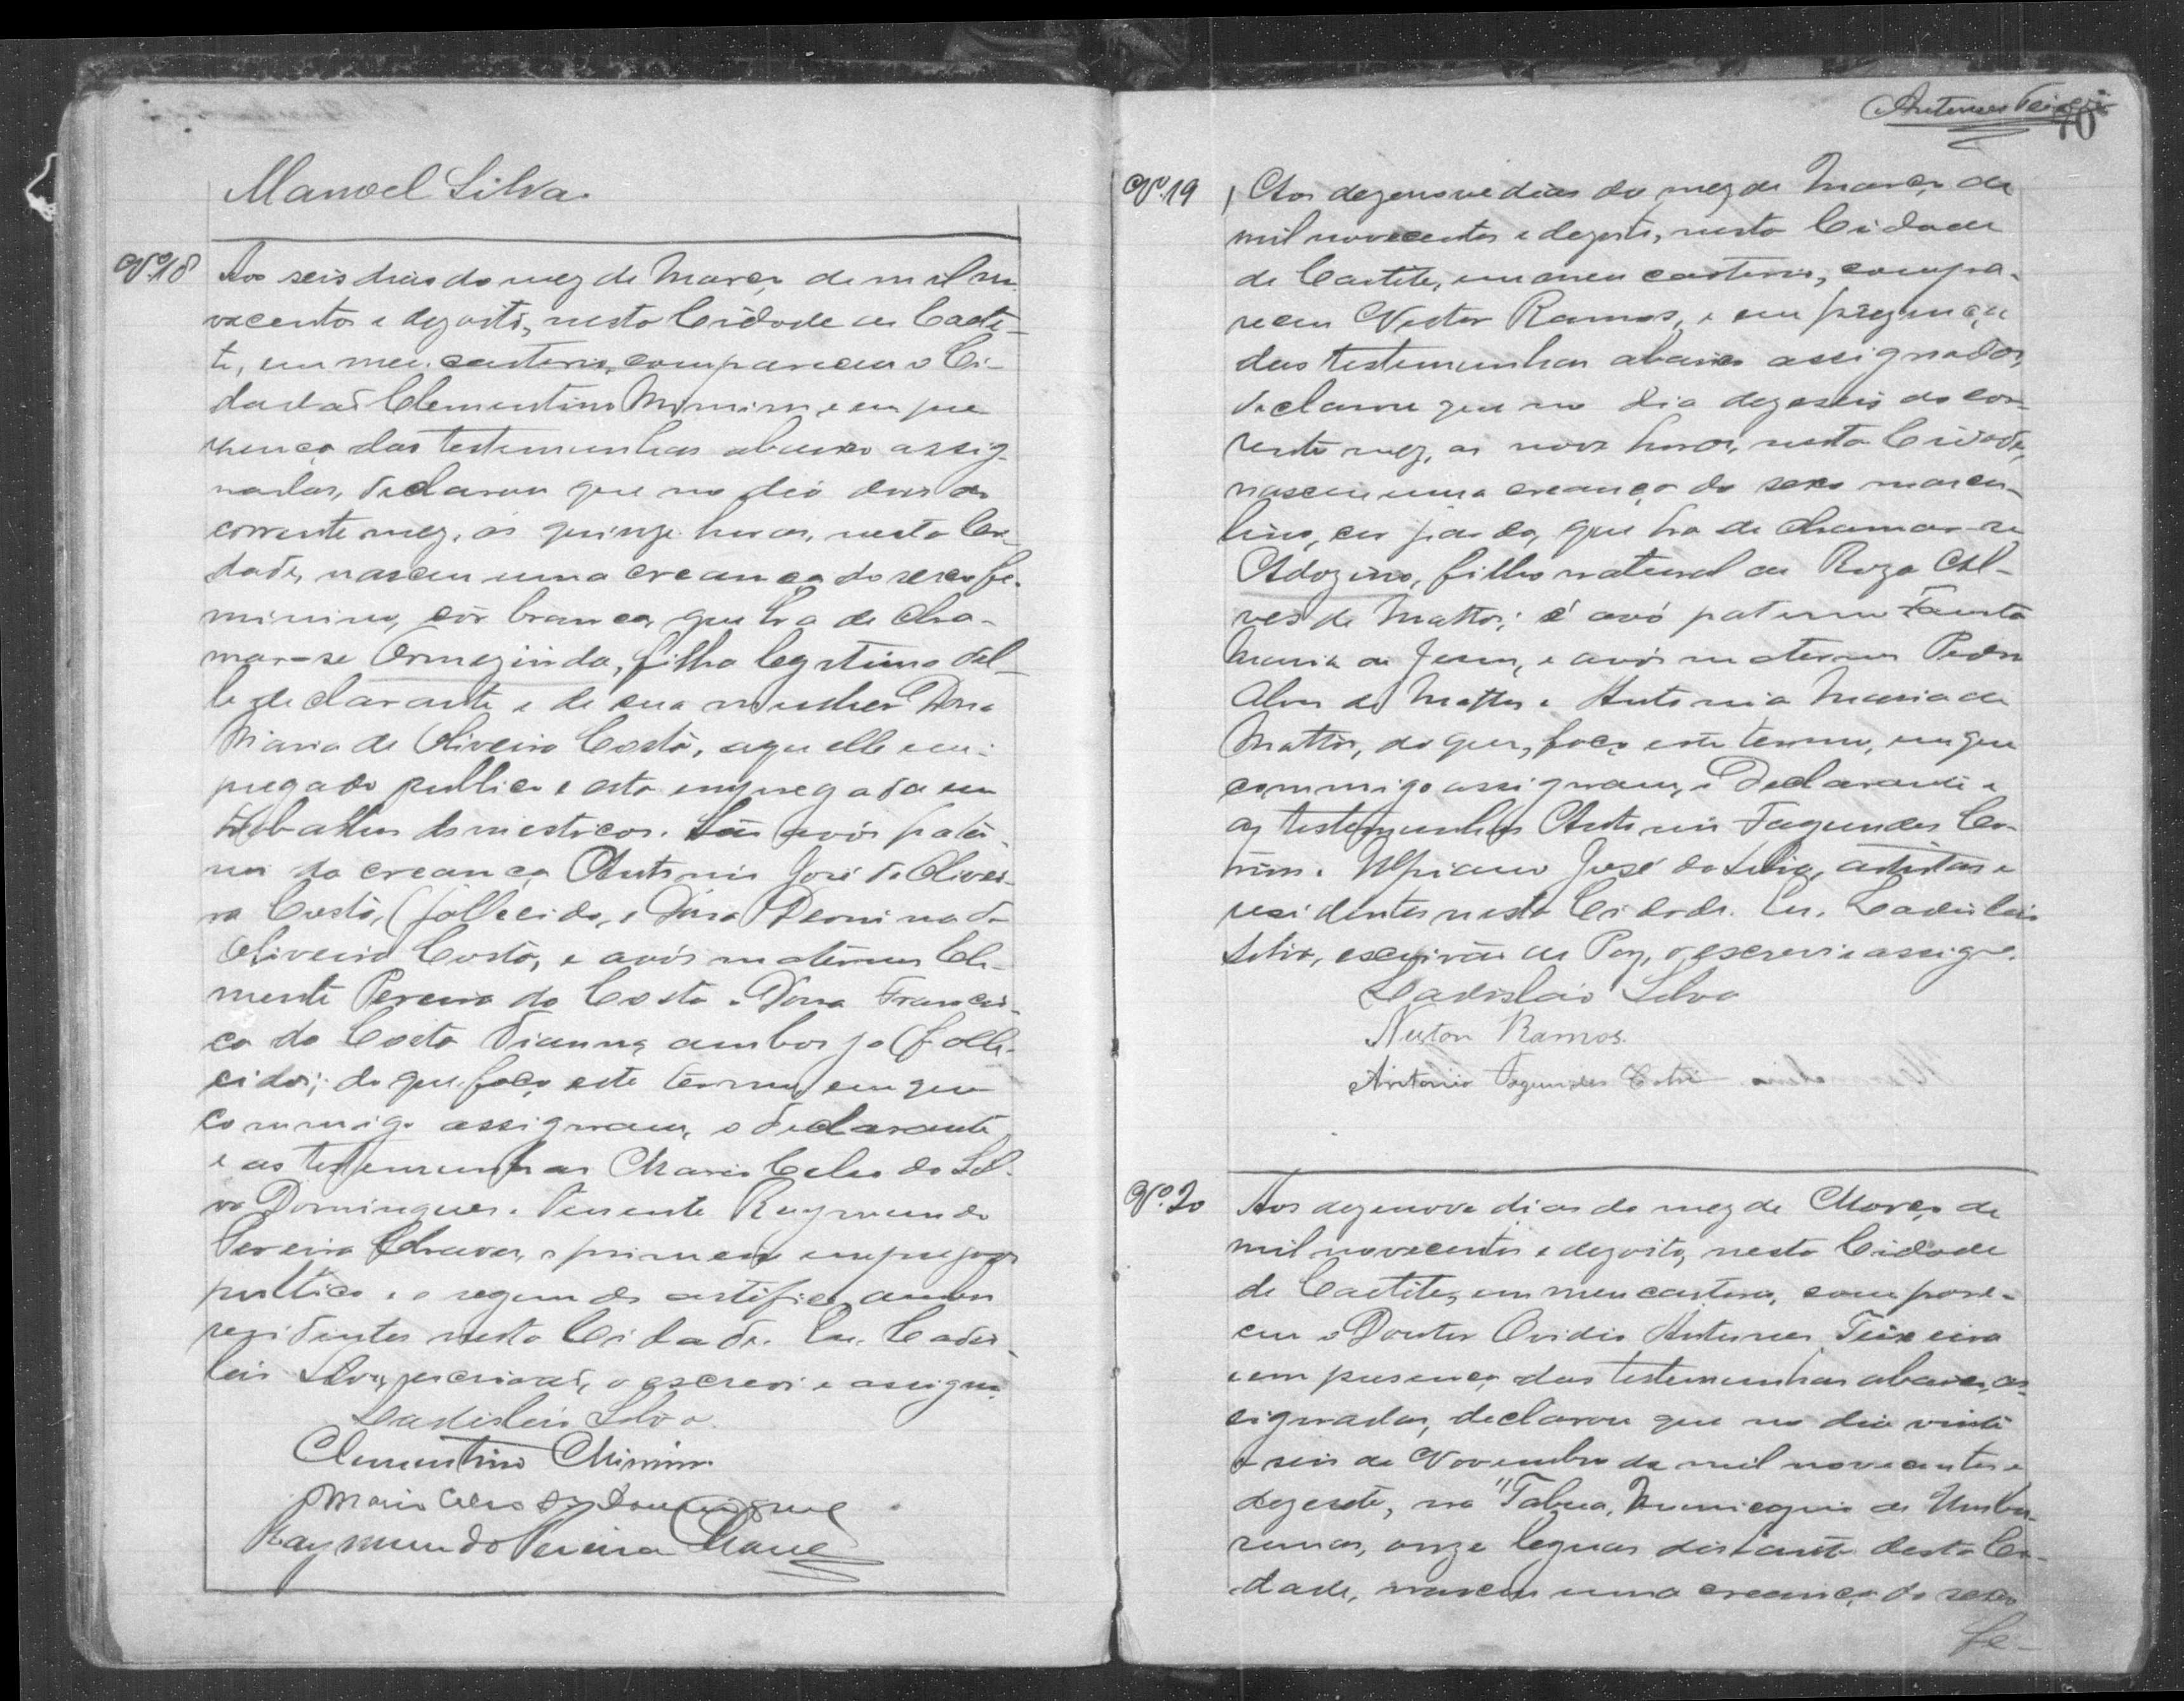 Manoel Silva
Nº 18 Aos seis dias do mez de Março de mil no-
vecentos e dezoito, nesta Cidade de Caeti-
te, em meu cartorio, compareceu o Ci-
dadão Clementino Mirnim e em pre-
zença das testemunhas abaixo assig-
nadas, declarou que no dia dois do
corrente mez, as quinze horas, nesta Ci-
dade, nasceu uma creança do sexo fe-
minino, côr branca, que ha de cha-
mar-se Ormezinda, filha legitima del-
le declarante e de sua mulher Dona
Maria de Oliveira Costa, aquelle em-
pregado publico e esta empregada em
trabalhos domesticos. São avós pater-
nos da creança Antonio José de Olivei-
ra Costa, fallecido, e Dona de
Oliveira Costa, e avós maternos Cle-
mente Pereira da Costa e Dona Francis-
ca da Costa Vianna ambos ja falle-
cidos; do que faço este termo em que
commigo assignam, o declarante
e as testemunhas Mario Celso da Sil-
va Domingues e Tenente Raymundo
Pereira Chaves, o primeiro empregado
publico e o segundo artifice, ambos
rezidentes nesta Cidade. Eu, Ladis-
láo Silva, escrivão, o escrevi e assigno.
Ladisláo Silva.
Clementino
Mario Celso da S. Domingues
Raymundo Pereira Chaves
Antunes Teixeira
70
Nº 19 Aos dezenove dias do mez de Março de
mil novecentos e dezoito, nesta Cidade
de Caetite, em meu cartorio, compa-
receu Ramos, e em prezença
das testemunhas abaixo assignadas,
declarou que no dia dezeseis do cor-
rente mez, as nove horas, nesta Cidade,
nasceu uma creança do sexo mascu-
lino, cor parda, que ha de chamar-se
Adozino, filho natural de Roza Al-
ves de Mattos; é avó paterna Fausta
Maria de Jesus, e avós maternos Pedro
Alves de Mattos e Antonia Maria de
Mattos, do que, faço este termo, em que
commigo assignam, o Declarante e
as testemunhas Antonio Fagundes Co-
trim e Ulpiano José da Silva, artistas e
residentes nesta Cidade. Eu, Ladisláo
Silva, escrivão de Paz, o escrevi e assigno.
Ladisláo Silva
Ramos.
Antonio Fagundes Cotrim
Nº 20 Aos dezenove dias do mez de Março de
mil novecentos e dezoito, nesta Cidade
de Caetite, em meu cartorio, compare-
ceu o Doutor Ovidio Antunes Teixeira
e em presença das testemunhas abaixo as-
signadas, declarou que no dia vinte
e seis de Novembro de mil novecentos e
dezesete, na "Tabua, Municipio de Umbu-
ranas, onze leguas distante desta Ci-
dade, nasceu uma creança do sexo
fe-